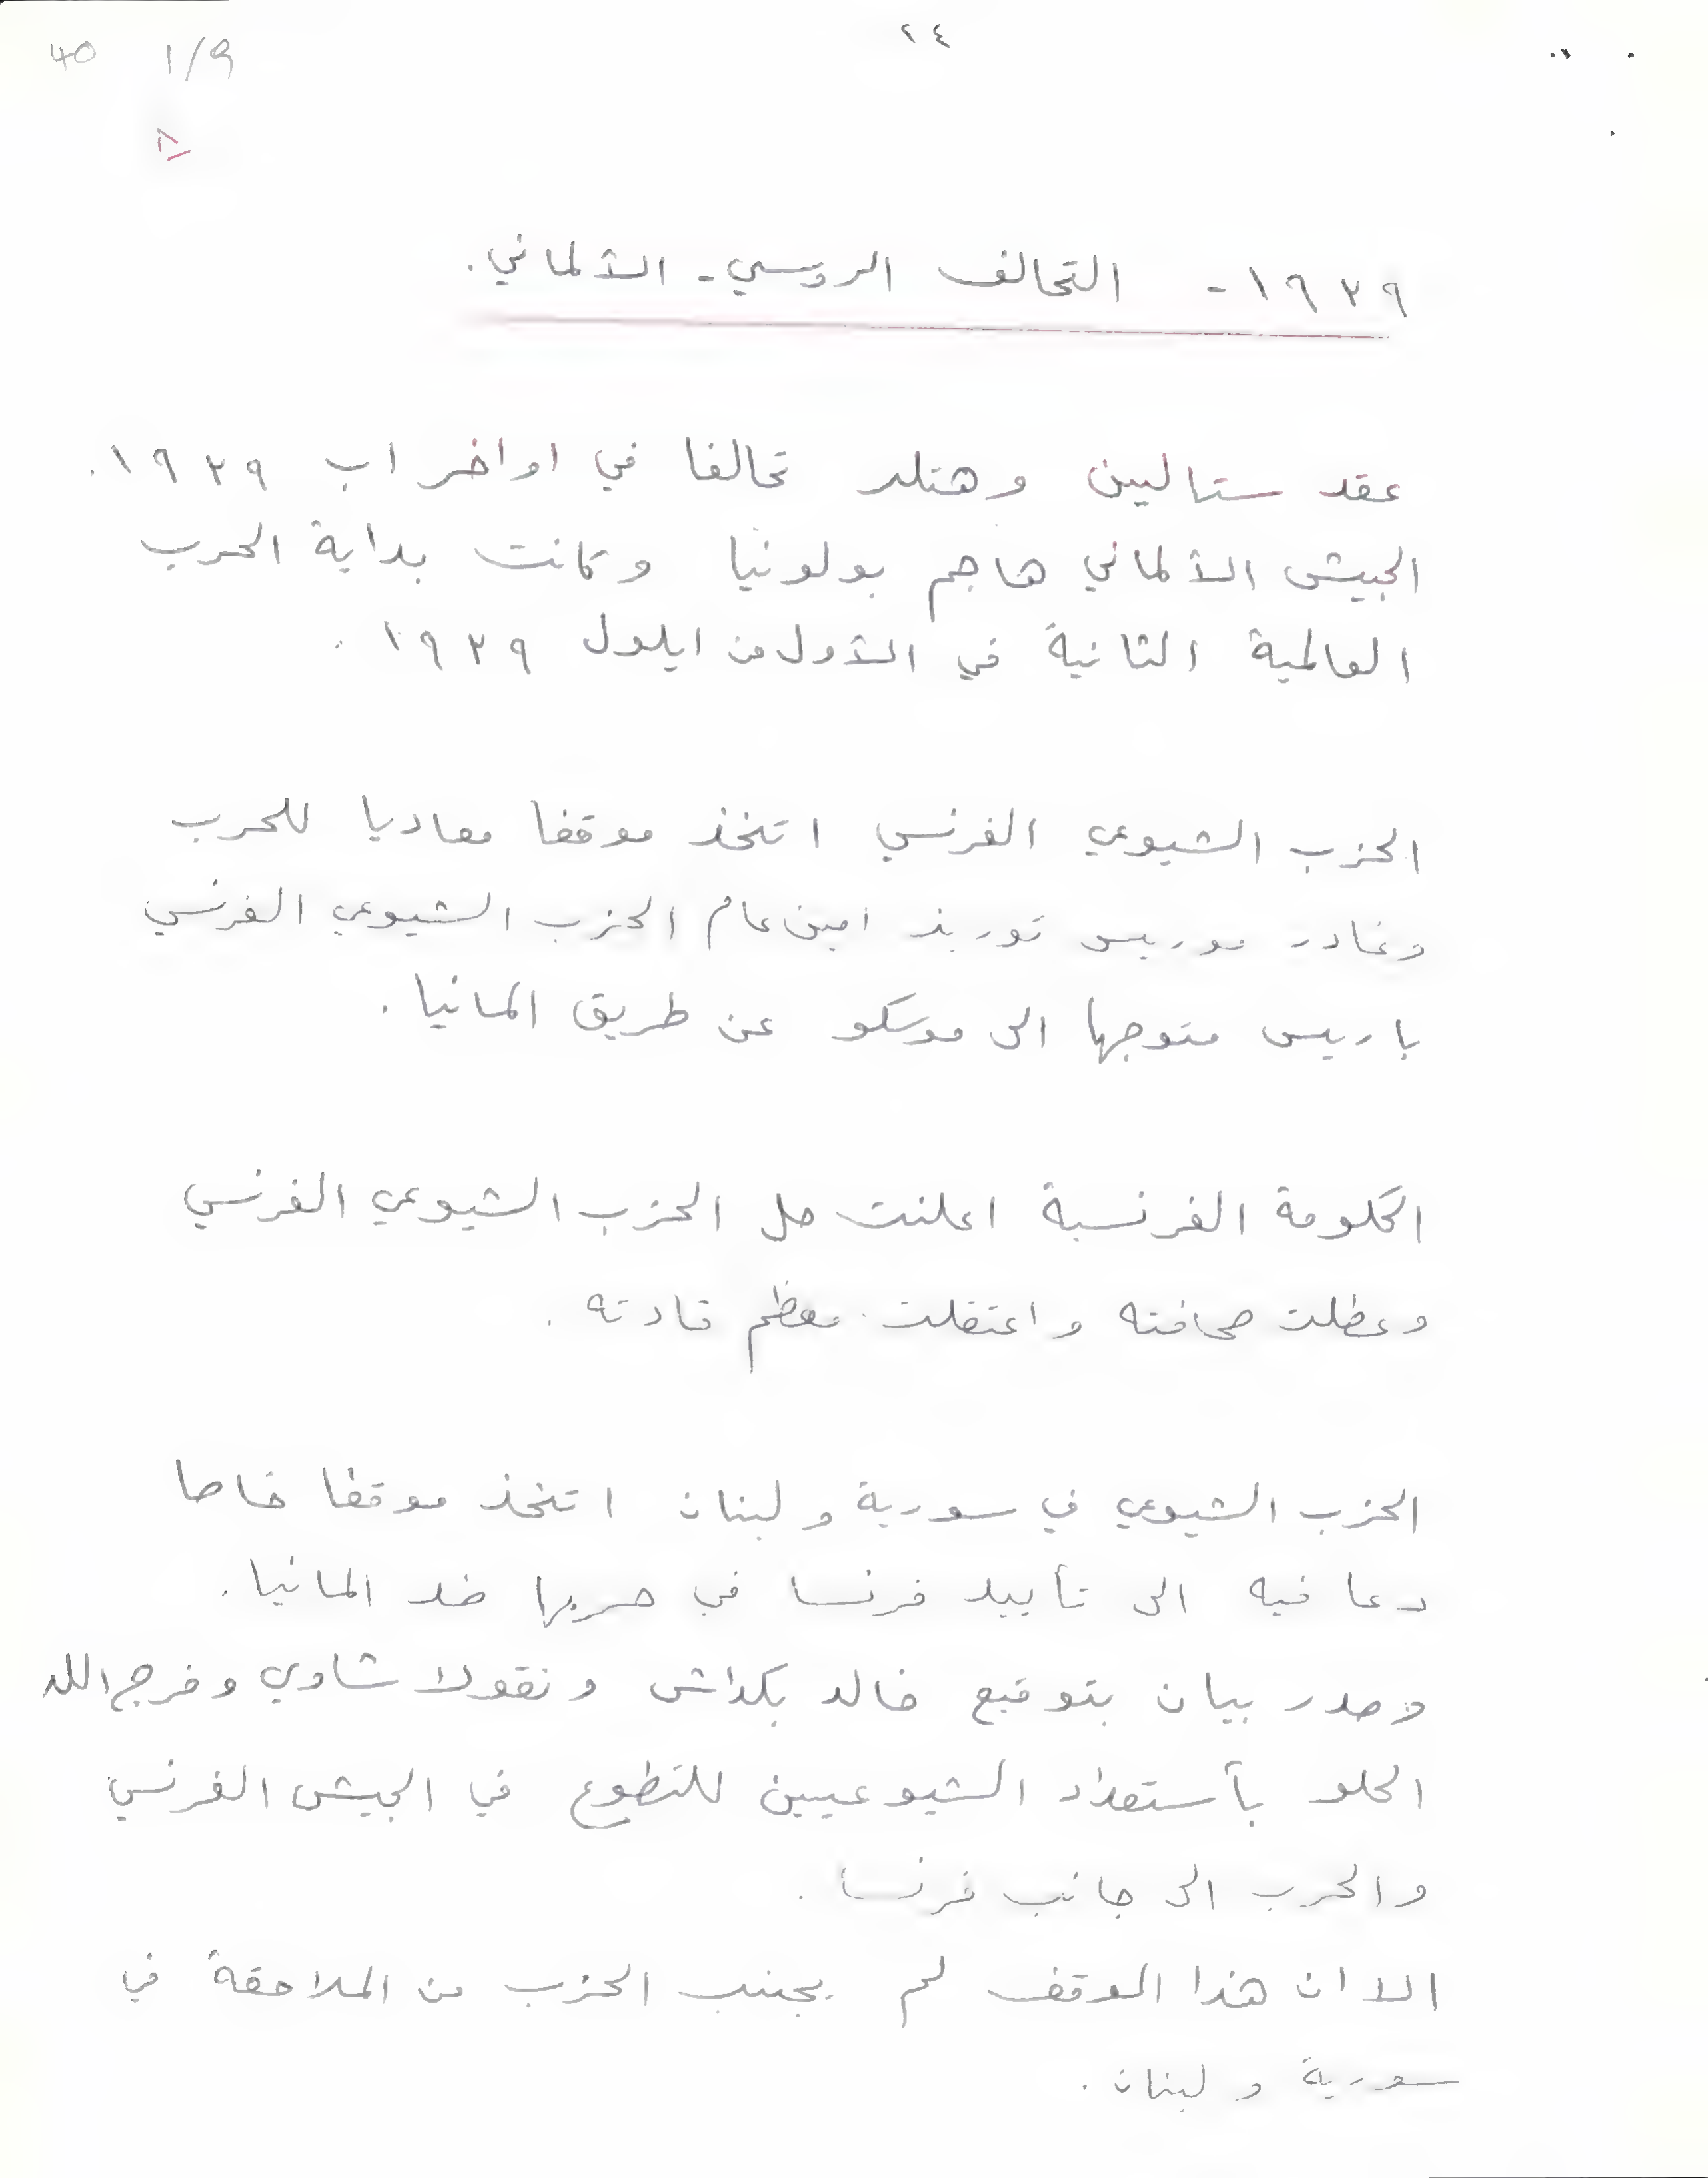 ٢٤
40 1/9
١٩٣٩- التحالف الروسي - الألماني.
عقد ستالين وهتلر تحالفا في اواخر اب ١٩٣٩.
الجيش الألماني هاجم بولونيا وكانت بداية الحرب
العالمية الثانية في الأول من ايلول ١٩٣٩.
الحزب الشيوعي الفرنسي اتخذ موقفا معاديا للحرب
وغادر موريس توريز امين عام الحزب الشيوعي الفرنسي
باريس متوجها الى موسكو عن طريق المانيا.
الحكومة الفرنسية اعلنت حل الحزب الشيوعي الفرنسي
وعطلت صحافته واعتقلت معظم قادته.
الحزب الشيوعي في سورية ولبنان اتخذ موقفا خاصا
دعا فيه الى تأييد فرنسا في حربها ضد المانيا.
وصدر بيان بتوقيع خالد بكداش ونقولا شاوي وفرج الله
الحلو بأستعداد الشيوعيين للتطوع في الجيش الفرنسي
والحرب الى جانب فرنسا.
الا ان هذا الموقف لم يجنب الحزب من الملاحقة في
سورية ولبنان.